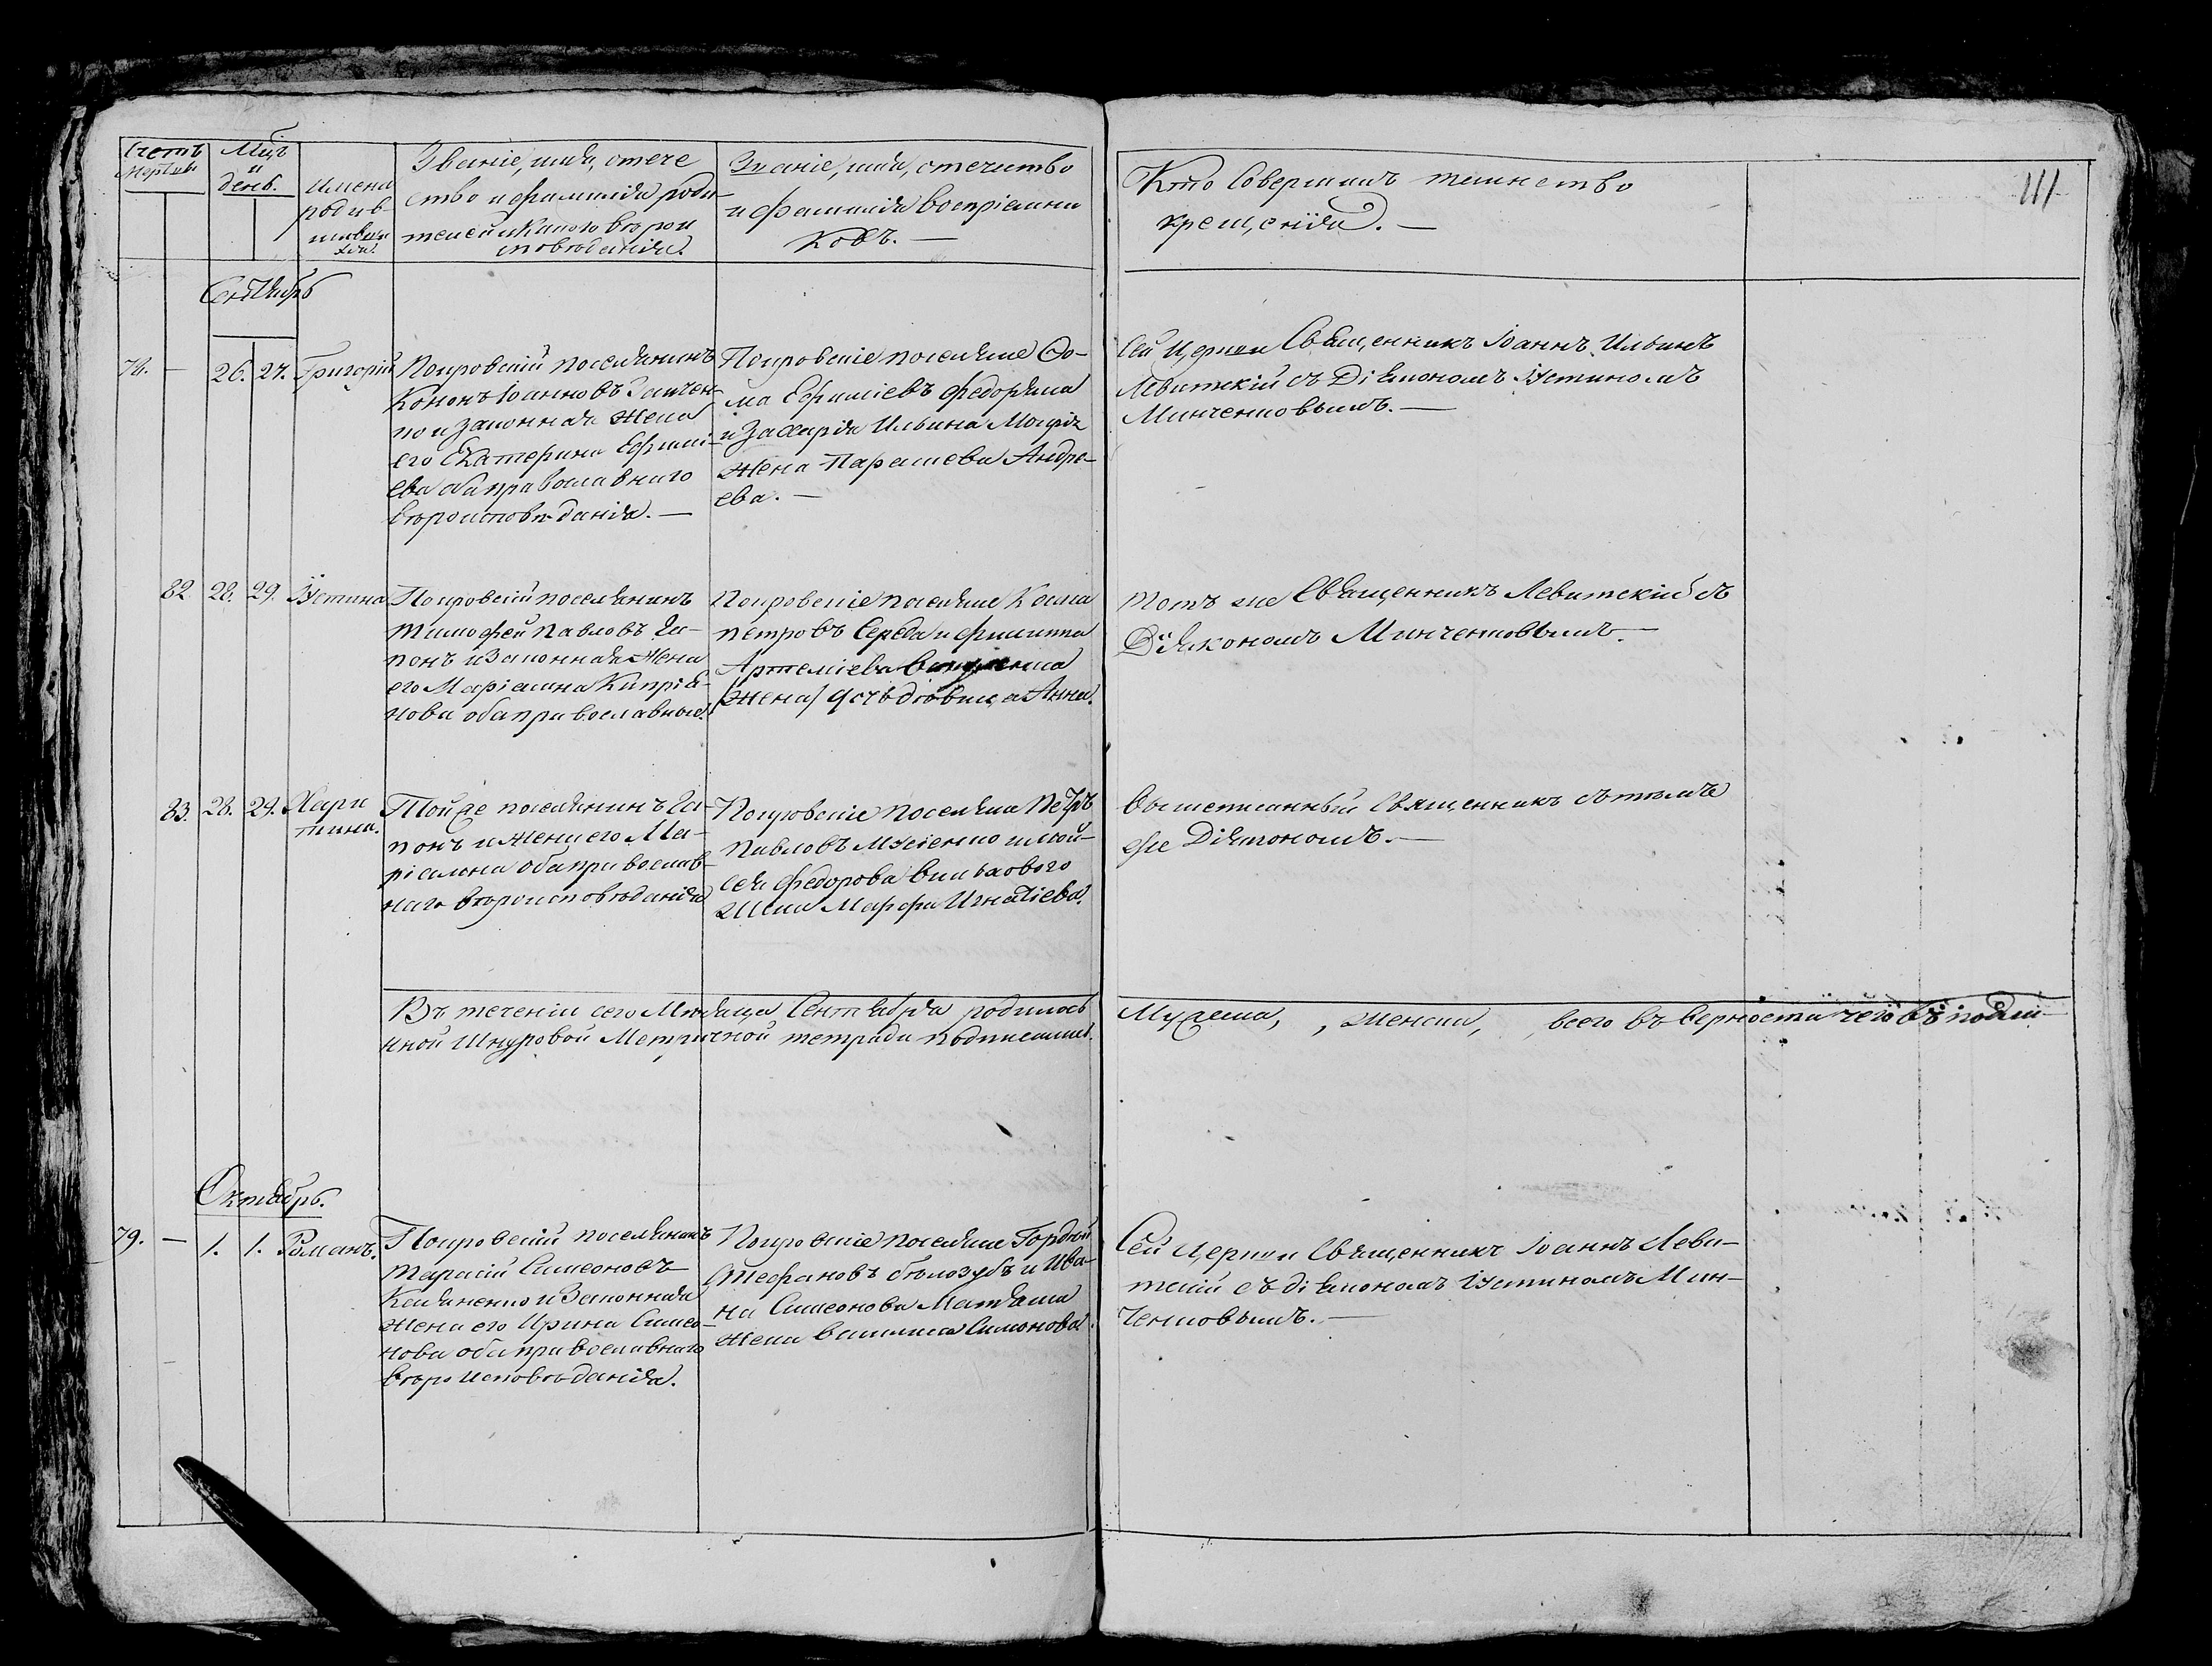 Счетъ
Мцъ
и
день.
Имена
родив-
шихся
Званіе, имя, отече
ство и фамилія роди-
телей и какого вѣрои
сповѣданія.
Званіе, имя, отечество
и фамилія воспріемни
ковъ. —
Кто совершилъ таинство
крещенія. —
111
Сентябрь
78. — 26. 27. Григорій
Покровскій поселянинъ
Кононъ Іоанновъ
но и законная жена
его Екатерина Ефимі-
ева оба православнаго
вѣроисповѣданія. —
Покровскіе поселяне Ѳо-
ма Ефиміевъ Федоряка
и Захарія Ильина
жена Параскева Андре-
ева. —
Сей Церкви Священникъ Іоаннъ Ильинъ
Левитскій съ Діакономъ Іустиномъ
Минченковымъ. —
82. 28. 29. Іустина
Покровскій поселянинъ
Тимофей Павловъ Га-
понъ и законная жена
его Маріамна Кипріа-
нова оба православные.
Покровскіе поселяне Косма
Петровъ Середа и Филиппа
Артеміева
жена дѣвица Анна.
Тотъ же Священникъ Левитскій съ
Діакономъ Минченковымъ. —
83. 28. 29. Хари
тина.
Той же поселянинъ Га-
понъ и жена его Ма-
ріамна оба православ-
наго вѣроисповѣданія
Покровскіе поселяне Петръ
Павловъ Мусіенко и Мой-
сея Федорова
жена Марфа Игнатіева.
Вышеписанный Священникъ съ тѣмъ
же Діакономъ. —
Въ теченіи сего Мѣсяца Сентября родилось Мужеска, , женска, , всего въ верности чего въ подли-
нной Шнуровой Метричной тетради подписались.
Октябрь.
79. — 1. 1. Романъ.
Покровскій поселянинъ
Тарасій Симеоновъ
и законная
жена его Ирина Симео-
нова оба православнаго
вѣроисповѣданія.
Покровскіе поселяне Гордѣй
Стефановъ Бѣлозубъ и Ива-
на Симеонова Матяша
жена Василиса Симонова.
Сей Церкви Священникъ Іоаннъ Леви-
тскій съ діакономъ Іустиномъ Мин-
ченковымъ. —